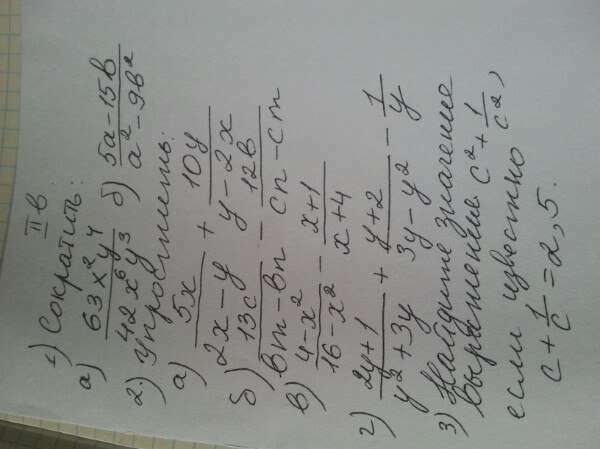 II в.
1) Сократить:
а) 63x²y⁴ / 42x⁶y³ б) 5a-15b / a²-9b²
2) Упростить:
а) 5x / 2x-y + 10y / y-2x
б) 13c / bm-bn - 12b / cn-cm
в) 4-x² / 16-x² - x+1 / x+4
г) 2y+1 / y²+3y + y+2 / 3y-y² - 1 / y
3) Найдите значение
выражение c² + 1/c²,
если известно
c + 1/c = 2,5.